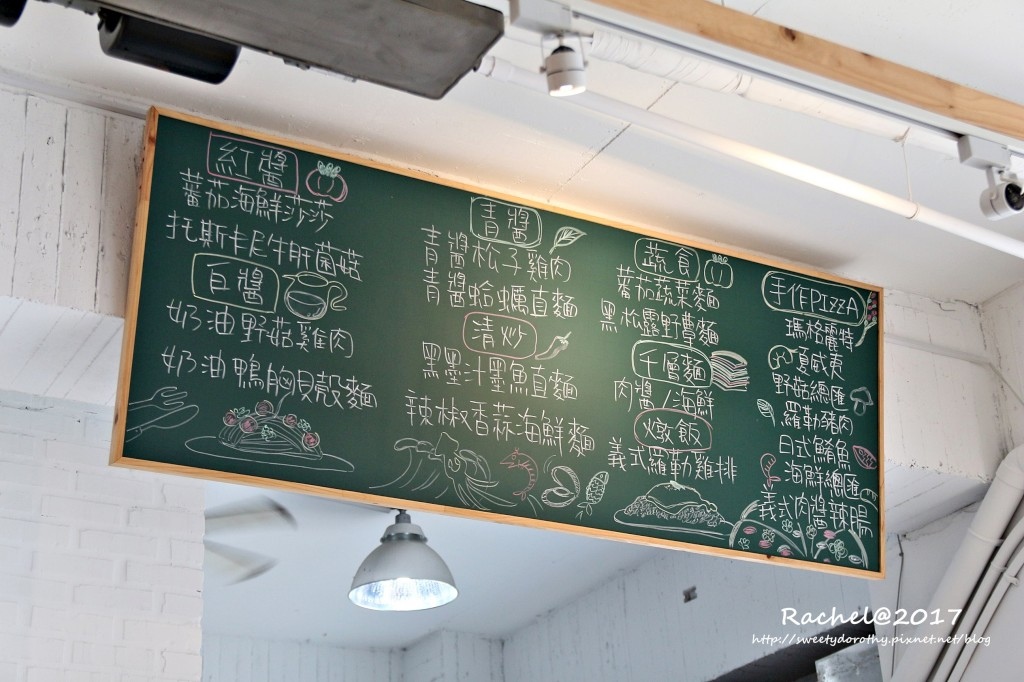 紅醬
蕃茄海鮮莎莎
托斯卡尼牛肝菌菇
白醬
奶油野菇雞肉
奶油鴨胸貝殼麵
青醬
青醬松子雞肉
青醬蛤蠣直麵
清炒
黑墨汁墨魚直麵
辣椒香蒜海鮮麵
蔬食
蕃茄蔬菜麵
黑松露野蕈麵
千層麵
肉醬/海鮮
燉飯
義式羅勒雞排
手作PIZZA
瑪格麗特
夏威夷
野菇總匯
羅勒豬肉
日式鮪魚
海鮮總匯
義式肉醬辣腸
Rachel@2017
http://sweetydorothy.pixnet.net/blog